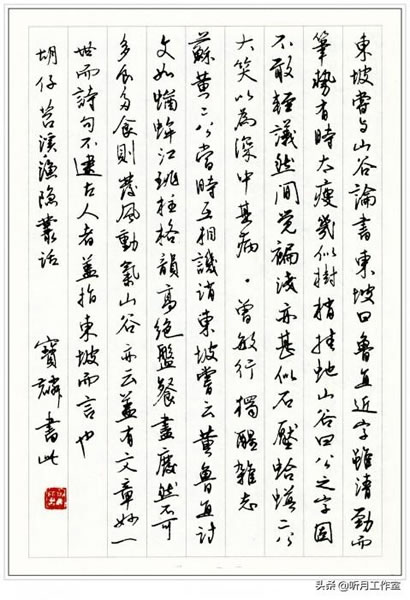 東坡嘗与山谷論書東坡曰魯直近字雖清勁而
筆勢有時太瘦幾似樹梢挂蛇山谷曰公之字固
不敢輕議然间觉褊淺亦甚似石壓蛤蟆二公
大笑以為深中其病。曾敏行 獨醒雜志
蘇黄二公當時互相譏誚東坡嘗云黄魯直詩
文如蝤蛑江珧柱格韻高絕盤餐盡廢然不可
多食多食則發風動氣山谷亦云盖有文章妙一
世而詩句不逮古人者盖指東坡而言也
胡仔苕溪漁隐叢话
寶麟書此
头条 @听月工作室